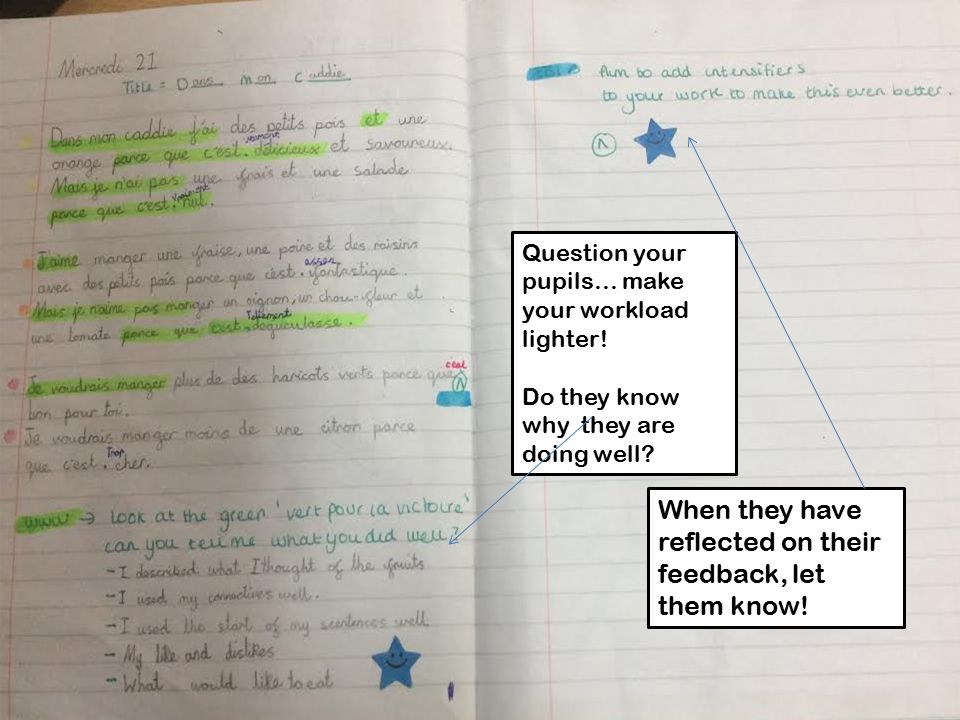 Mercredi 21
Title = Dans mon caddie
Dans mon caddie j'ai des petits pois et une
vraiment
orange parce que c'est . délicieux et savoureux.
Mais je n'ai pas une frais et une salade
vraiment
parce que c'est . nul.
J'aime manger une fraise, une poire et des raisins
assez
avec des petits pois parce que c'est . fantastique.
Mais je n'aime pas manger un oignon, un chou-fleur et
Tellement
une tomate parce que c'est . degueulasse.
c'est
Je voudrais manger plus de des haricots verts parce que
bon pour toi.
Je voudrais manger moins de une citron parce
Trop
que c'est . cher.
WWW → Look at the green 'vert pour la victoire'
can you tell me what you did well?
- I described what I thought of the fruits
- I used my connectives well.
- I used the start of my scentences well
- My like and dislikes
- What would like to eat
Aim to add intensifiers
to your work to make this even better.
Question your
pupils... make
your workload
lighter!
Do they know
why they are
doing well?
When they have
reflected on their
feedback, let
them know!